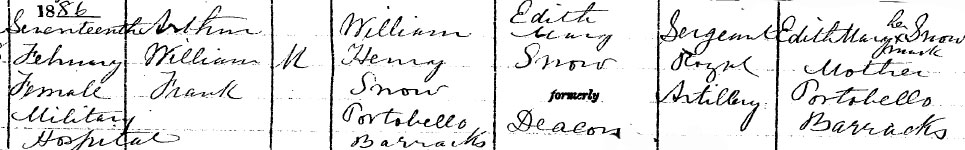 1886
Seventeenth Arthur William Edith Sergeant Edith Mary her x Snow
February William M Henry Mary Royal mark
Female Frank Snow Snow Artillery Mother
Military Portobello formerly Portobello
Hospital Barracks Deacon Barracks